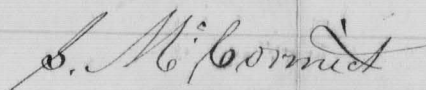 S. McCormict